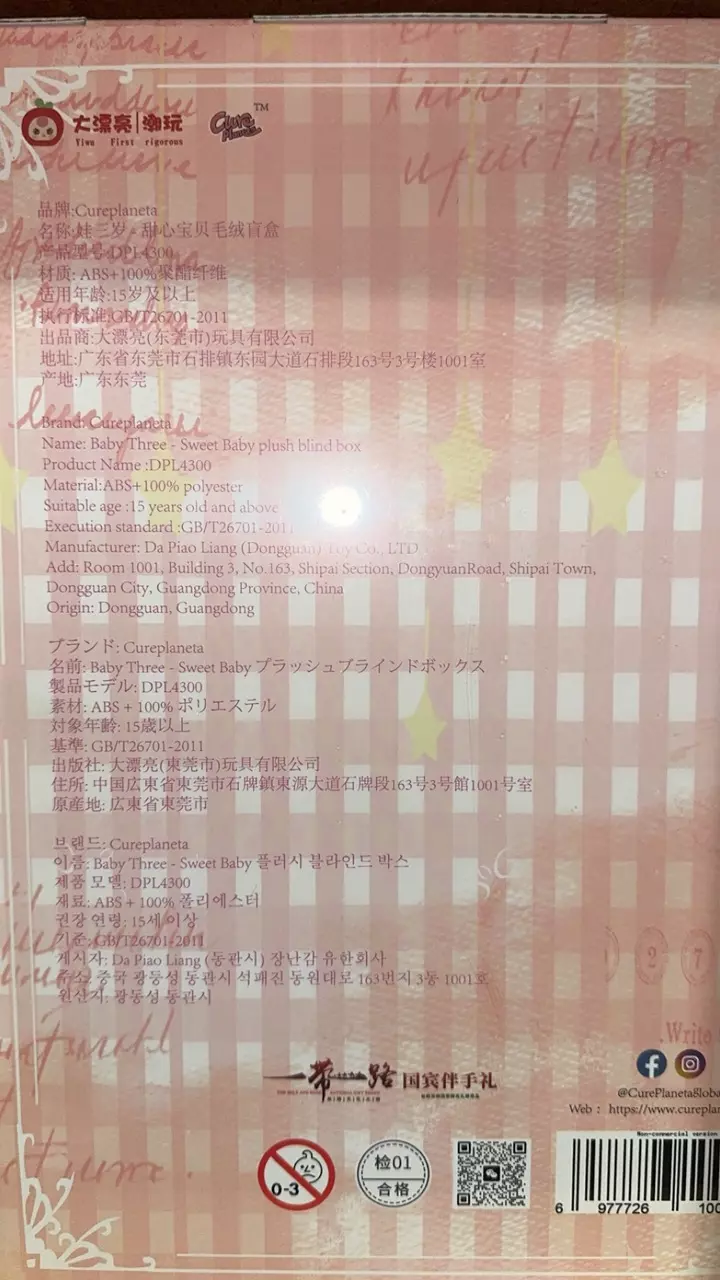 大漂亮|潮玩
Yiwu First rigorous
Cure Planeta
TM
品牌:Cureplaneta
名称:娃三岁 - 甜心宝贝毛绒盲盒
产品型号:DPL4300
材质: ABS+100%聚酯纤维
适用年龄:15岁及以上
执行标准:GB/T26701-2011
出品商:大漂亮(东莞市)玩具有限公司
地址:广东省东莞市石排镇东园大道石排段163号3号楼1001室
产地:广东东莞
Brand: Cureplaneta
Name: Baby Three - Sweet Baby plush blind box
Product Name :DPL4300
Material:ABS+100% polyester
Suitable age :15 years old and above
Execution standard :GB/T26701-2011
Manufacturer: Da Piao Liang (Dongguan) Toy Co., LTD
Add: Room 1001, Building 3, No.163, Shipai Section, DongyuanRoad, Shipai Town,
Dongguan City, Guangdong Province, China
Origin: Dongguan, Guangdong
ブランド: Cureplaneta
名前: Baby Three - Sweet Baby プラッシュブラインドボックス
製品モデル: DPL4300
素材: ABS + 100% ポリエステル
対象年齢: 15歳以上
基準: GB/T26701-2011
出版社: 大漂亮(東莞市)玩具有限公司
住所: 中国広東省東莞市石牌鎮東源大道石牌段163号3号館1001号室
原産地: 広東省東莞市
브랜드: Cureplaneta
이름: Baby Three - Sweet Baby 플러시 블라인드 박스
제품 모델: DPL4300
재료: ABS + 100% 폴리에스터
권장 연령: 15세 이상
기준: GB/T26701-2011
게시자: Da Piao Liang (동관시) 장난감 유한회사
주소: 중국 광둥성 동관시 석패진 동원대로 163번지 3동 1001호
원산지: 광동성 동관시
2 7
Write
一带一路 国宾伴手礼
@CurePlanetaGloba
Web : https://www.cureplan
0-3
检01
合格
Non-commercial version
6 977726 100